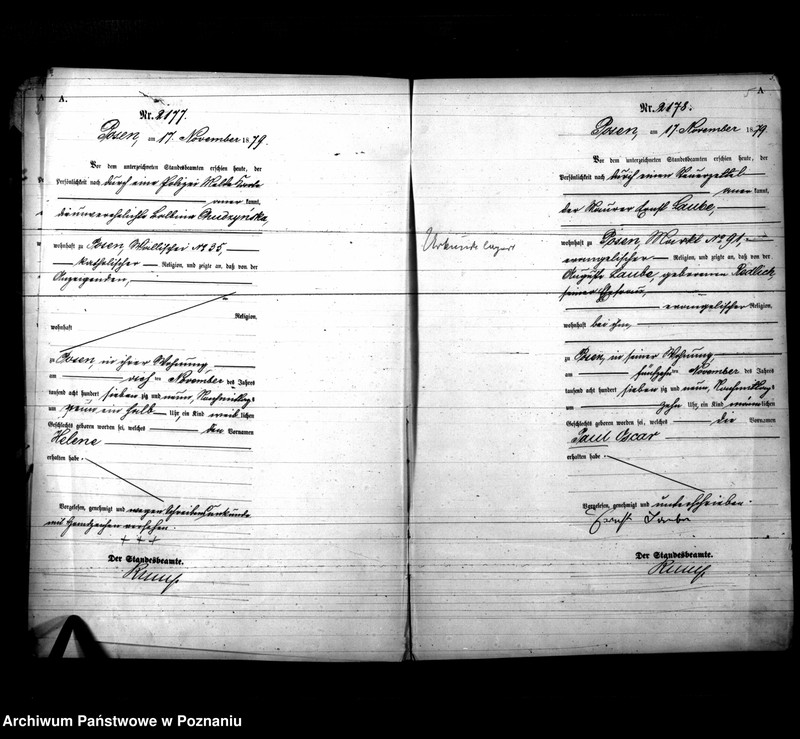 A.
Nr. 2177.
Posen, am 17. November 1879.
Vor dem unterzeichneten Standesbeamten erschien heute, der
Persönlichkeit nach durch eine Polizei Melde Karte
aner kannt,
die unverehelichte Balbina Chudzyńska,
wohnhaft zu Posen, Wallischei No 35,
katholischer Religion, und zeigte an, daß von der
Anzeigenden,
Religion,
wohnhaft
zu Posen, in ihrer Wohnung,
am November des Jahres
tausend acht hundert sieben zig und neun, Nachmittags
um ein halb Uhr, ein Kind weib lichen
Geschlechts geboren worden sei, welches den Vornamen
Helene
erhalten habe.
Vorgelesen, genehmigt und wegen Schreibensunkunde
mit Handzeichen versehen.
+ + +
Der Standesbeamte.
A
Nr. 2178.
Posen, am 17. November 1879.
Vor dem unterzeichneten Standesbeamten erschien heute, der
Persönlichkeit nach durch einen Steuerzettel
aner kannt,
der Maurer Ernst Laube,
wohnhaft zu Posen, Markt No 91,
evangelischer Religion, und zeigte an, daß von der
Auguste Laube, geborenen Redlich,
seiner Ehefrau,
evangelischer Religion,
wohnhaft bei ihm,
zu Posen, in seiner Wohnung,
am fünfzehn ten November des Jahres
tausend acht hundert sieben zig und neun, Nachmittags
um zehn Uhr, ein Kind männ lichen
Geschlechts geboren worden sei, welches die Vornamen
Paul Oscar
erhalten habe.
Vorgelesen, genehmigt und unterschrieben.
Ernst Laube
Der Standesbeamte.
Archiwum Państwowe w Poznaniu